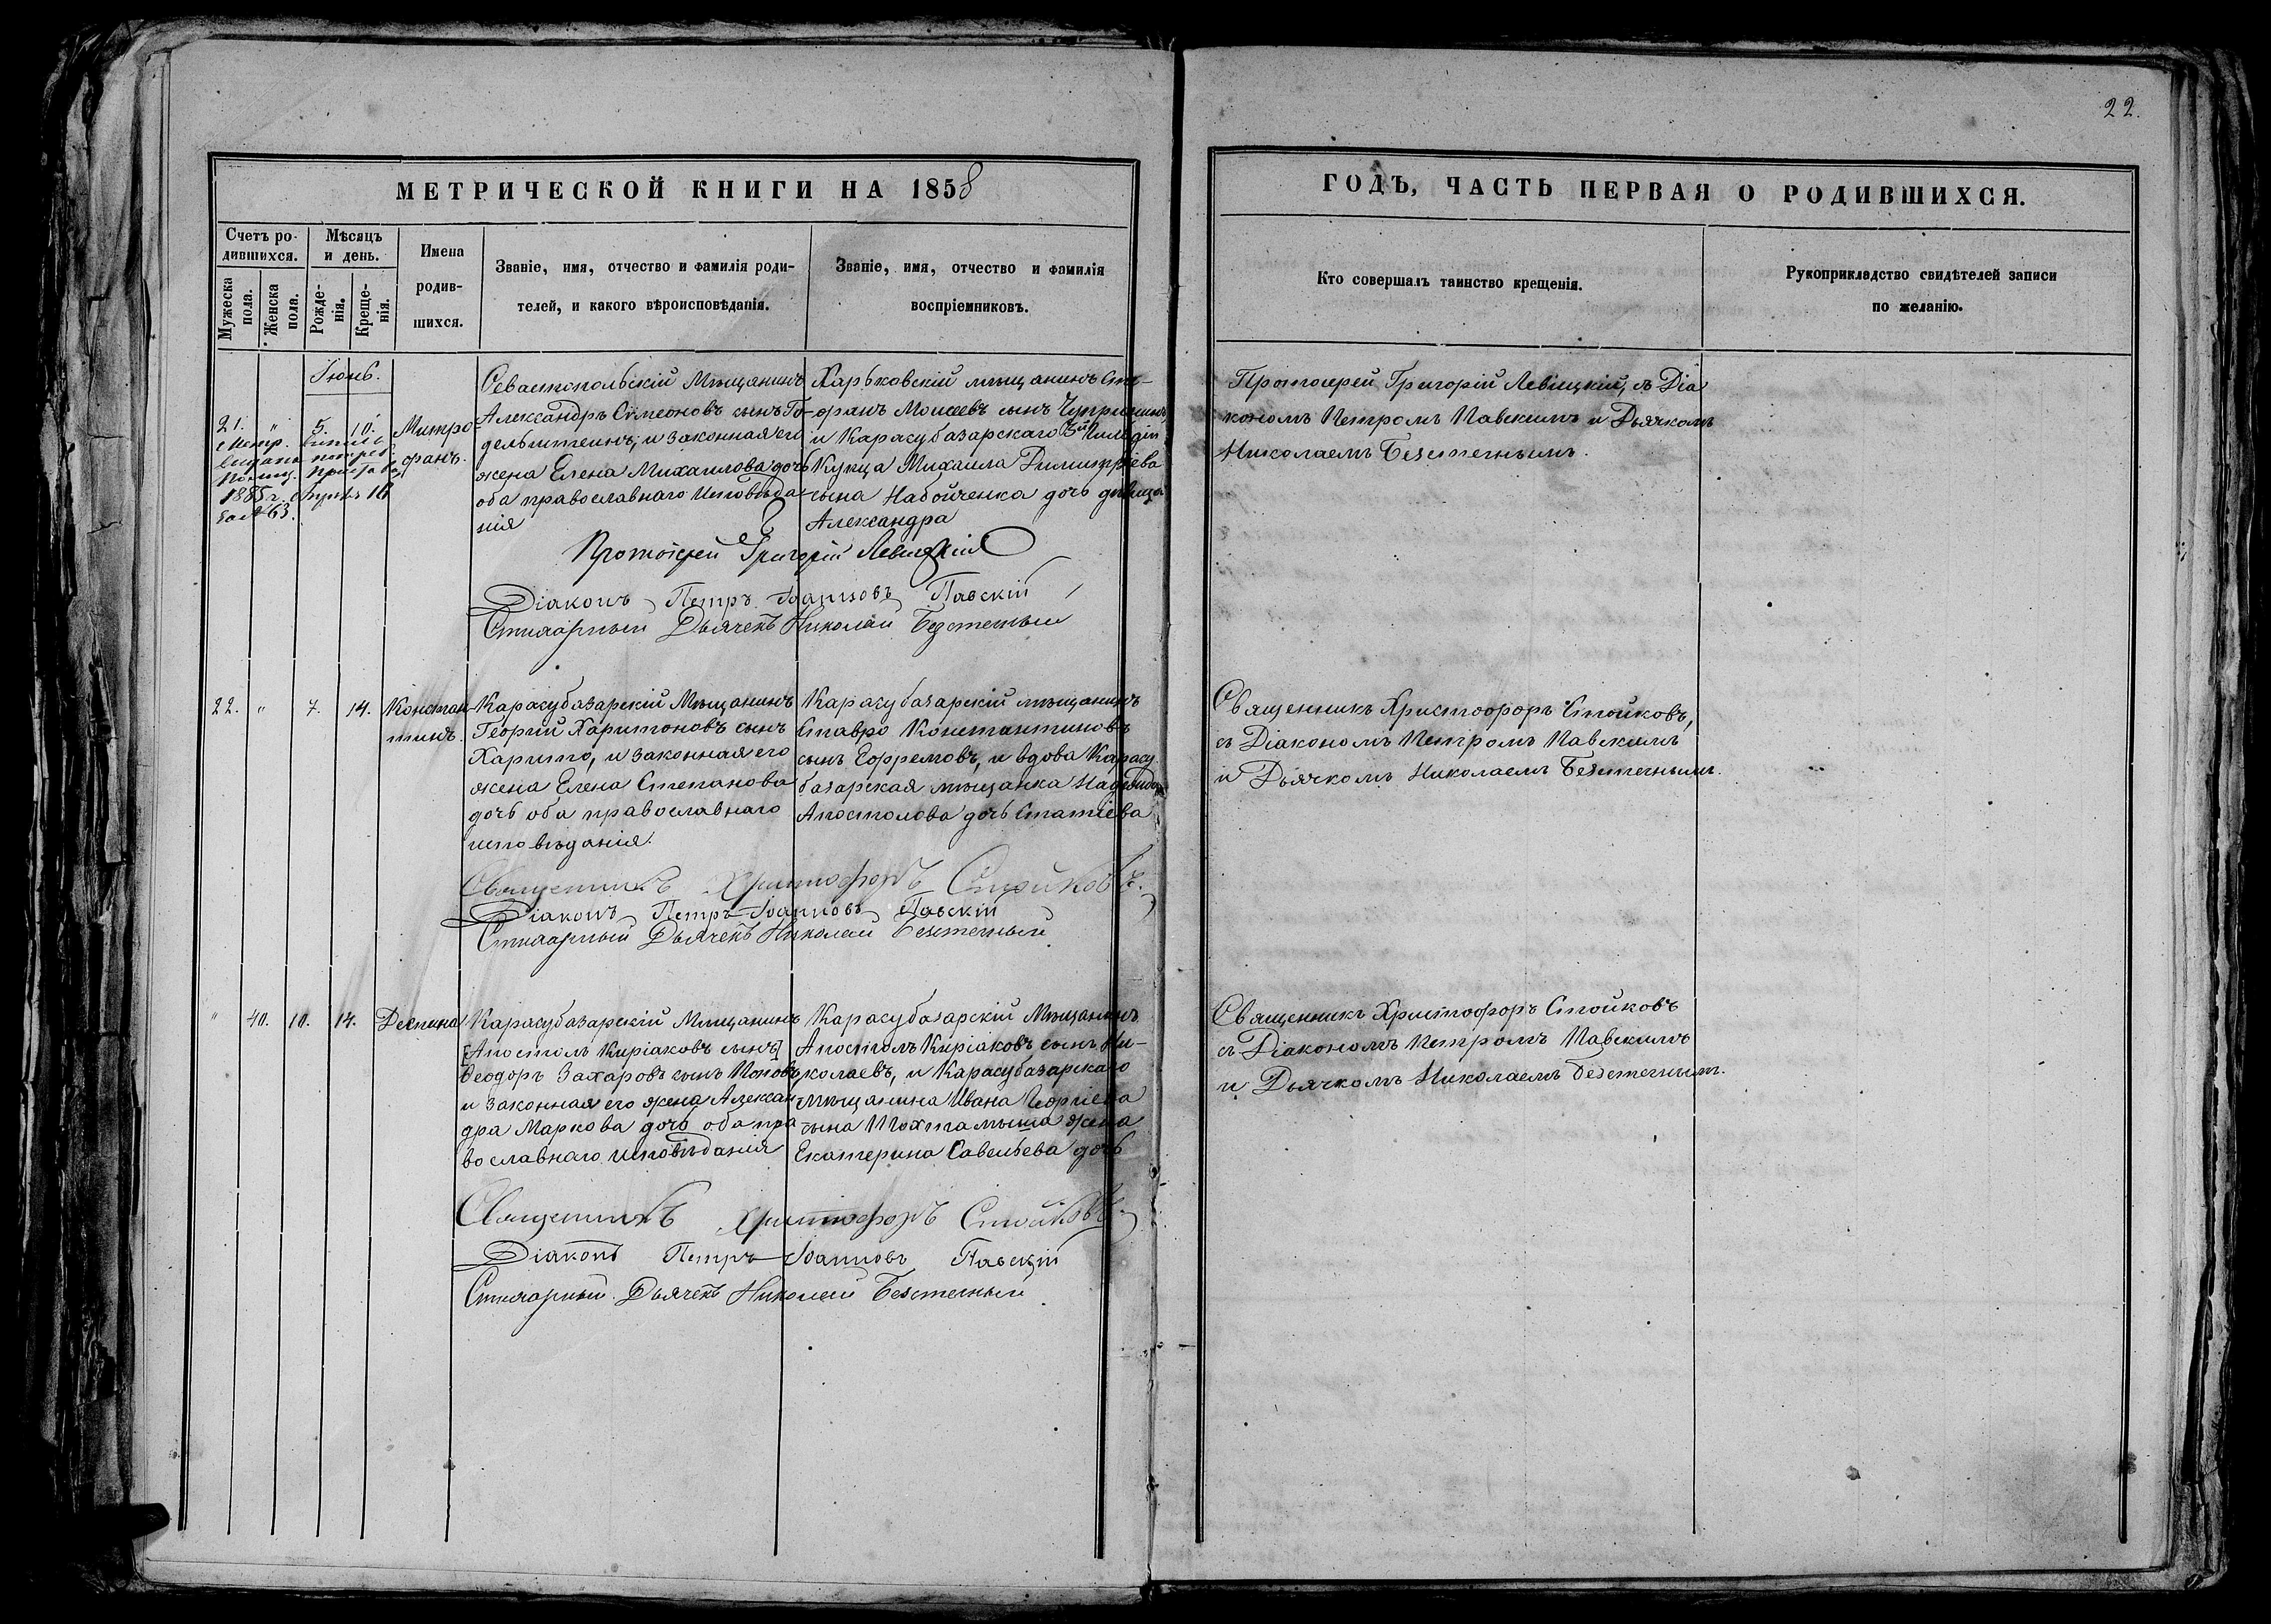 22.
МЕТРИЧЕСКОЙ КНИГИ НА 1858
ГОДЪ, ЧАСТЬ ПЕРВАЯ О РОДИВШИХСЯ.
Счетъ ро-
дившихся.
Мужеска
пола.
Женска
пола.
Мѣсяцъ
и день.
Рожде-
нія.
Креще-
нія.
Имена
родив-
шихся.
Званіе, имя, отчество и фамилія роди-
телей, и какого вѣроисповѣданія.
Званіе, имя, отчество и фамилія
воспріемниковъ.
Кто совершалъ таинство крещенія.
Рукоприкладство свидѣтелей записи
по желанію.
Іюнь.
21. " 5. 10.
Митро
фанъ.
1885 г. 16
за № 63.
Севастопольскій Мѣщанинъ
Александръ Симеоновъ сынъ
и законная его
жена Елена Михаилова дочь
оба православнаго исповѣда-
нія
Харьковскій мѣщанинъ Сте-
фанъ Моисеевъ сынъ
и Карасубазарскаго 3й Гильдіи
Купца Михаила Димитріева
сына Набойченка дочь дѣвица
Александра
Протоіерей Григорій Левицкій
Діаконъ Петръ Іоанновъ Павскій
Стихарный Дьячекъ Николай Безтечный
Протоіерей Григорій Левицкій, съ Діа
кономъ Петромъ Павскимъ и Дьячкомъ
Николаемъ Безтечнымъ.
22. " 7. 14.
Констан
тинъ.
Карасубазарскій Мѣщанинъ
Георгій Харитоновъ сынъ
Харито, и законная его
жена Елена Степанова
дочь оба православнаго
исповѣданія.
Карасубазарскій мѣщанинъ
Ставро Константиновъ
сынъ Ефремовъ, и вдова Карасу
базарская мѣщанка Надежда
Апостолова дочь Статіева
Священникъ Христофоръ Стойковъ.
Діаконъ Петръ Іоанновъ Павскій
Стихарный Дьячекъ Николай Безтечный
Священникъ Христофоръ Стойковъ,
съ Діакономъ Петромъ Павскимъ
и Дьячкомъ Николаемъ Безтечнымъ.
" 40. 10. 14.
Деспина
Карасубазарскій Мѣщанинъ
[Апостолъ Киріаковъ сынъ]
Ѳеодоръ Захаровъ сынъ Поповъ,
и законная его жена Алексан
дра Маркова дочь оба пра
вославнаго исповѣданія
Карасубазарскій Мѣщанинъ
Апостолъ Киріаковъ сынъ Ни-
колаевъ, и Карасубазарскаго
мѣщанина Ивана Георгіева
сына Тохтамыша жена
Екатерина Савельева дочь
Священникъ Христофоръ Стойковъ.
Діаконъ Петръ Іоанновъ Павскій
Стихарный Дьячекъ Николай Безтечный
Священникъ Христофоръ Стойковъ
съ Діакономъ Петромъ Павскимъ
и Дьячкомъ Николаемъ Безтечнымъ.